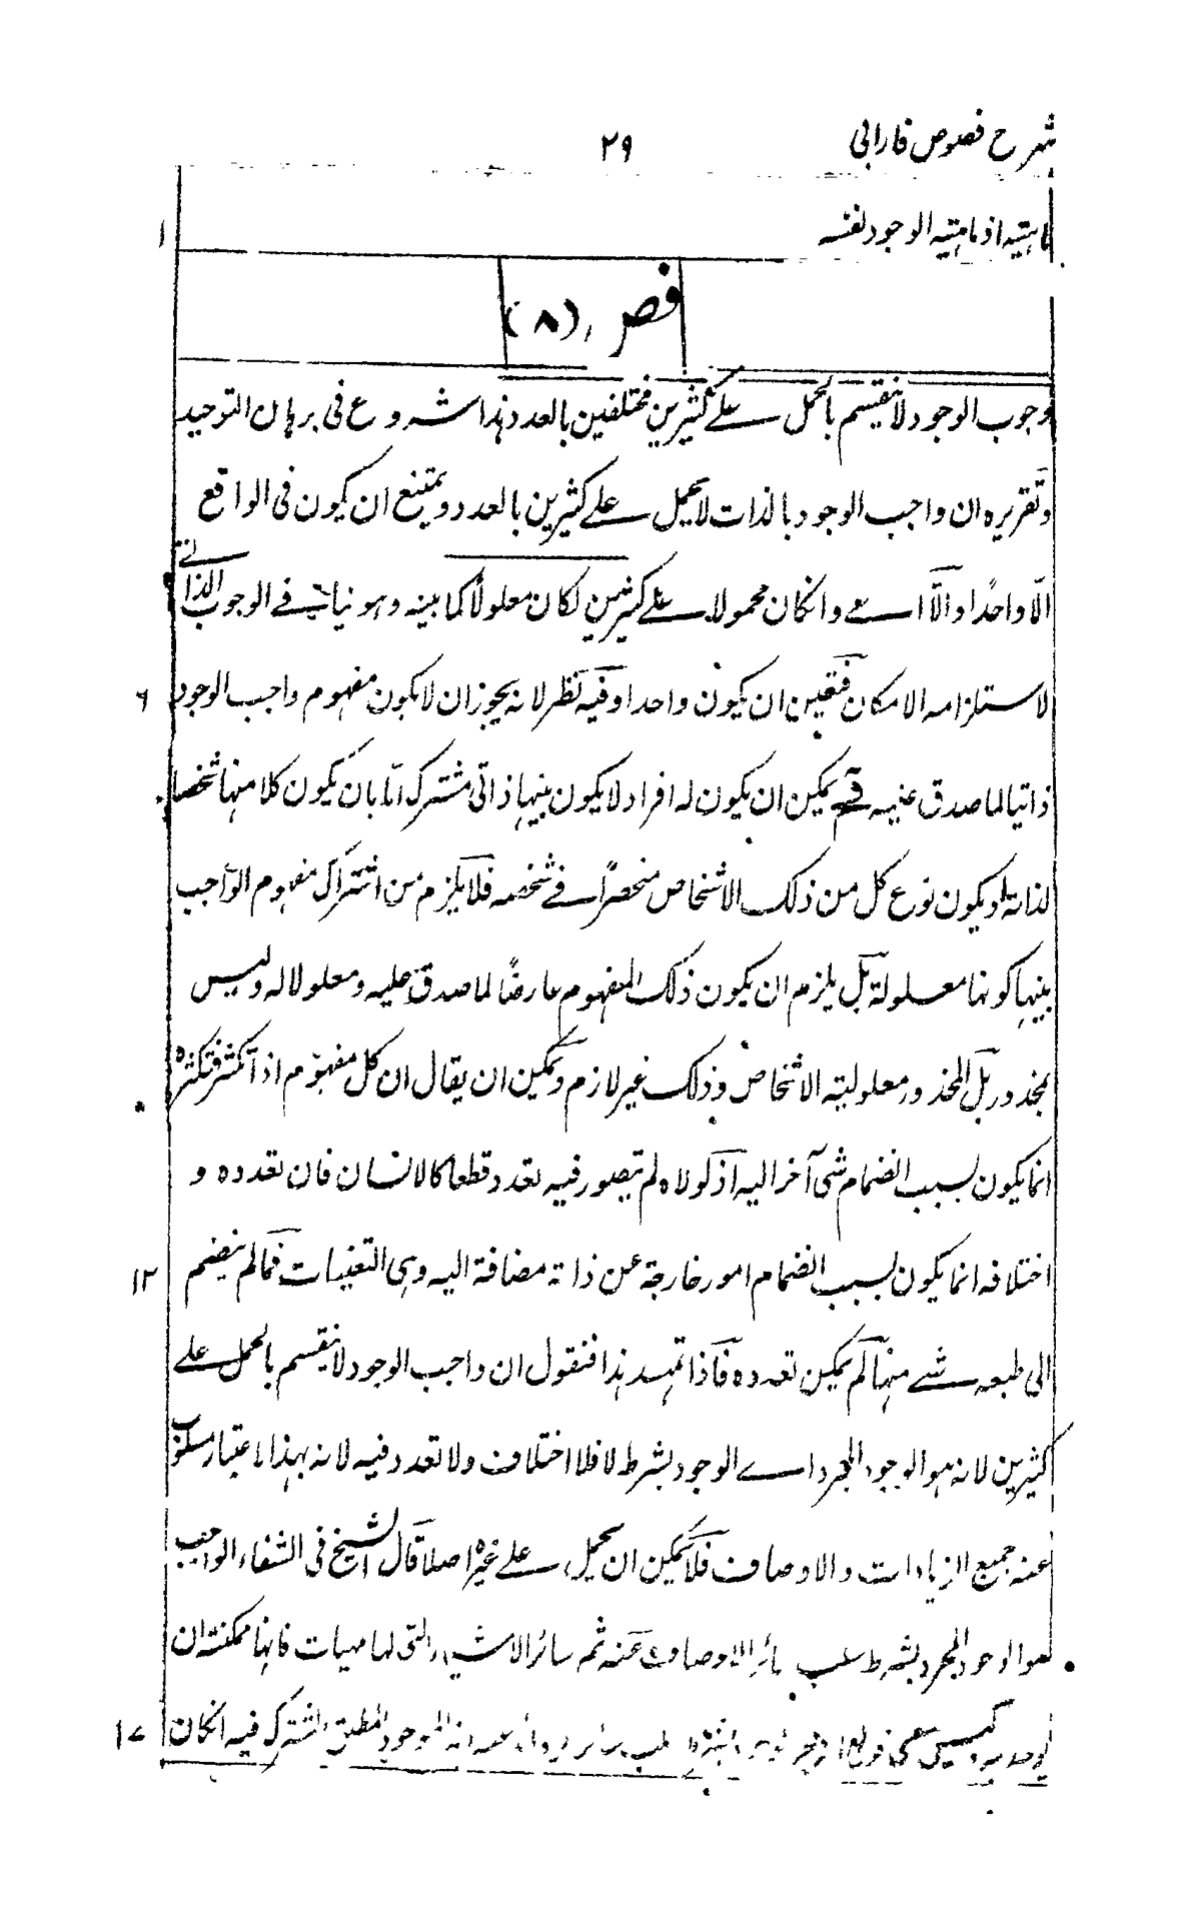 شرح فصوص فارابی
۲۹
ماهيته اذ ماهية الوجود نفسه
۱
فص (۸)
وجوب الوجود لا ينقسم بالحمل على كثيرين مختلفين بالعدد هذا شروع فى برهان التوحيد
وتقريره ان واجب الوجود بالذات لا يحمل على كثيرين بالعدد ويمتنع ان يكون فى الواقع
الّا واحدًا والّا اى وانكان محمولا على كثيرين لكان معلولًا كما بينه وهو ينافى الوجوب الذاتى
لاستلزامه الامكان فتعين ان يكون واحدا وفيه نظر لانه يجوز ان لا يكون مفهوم واجب الوجود
۶
ذاتيا لما صدق عليه فح يمكن ان يكون له افراد لا يكون بينها ذاتى مشترك امّا بان يكون كلا منها شخصا
لذاته او يكون نوع كل من ذلك الاشخاص منحصرًا فى شخصه فلا يلزم من اشتراك مفهوم الواجب
بينها كونها معلولة بل يلزم ان يكون ذلك المفهوم عارضًا لما صدق عليه ومعلولا له وليس
بمحذور بل المحذور معلولية الاشخاص وذلك غير لازم ويمكن ان يقال ان كل مفهوم اذا تكثر فتكثره
انما يكون بسبب انضمام شئ آخر اليه اذ لولاه لم يتصور فيه تعدد قطعا كالانسان فان تعدده و
اختلافه انما يكون بسبب انضمام امور خارجة عن ذاته مضافة اليه وهى التعينات فمالم ينضم
۱۲
الى طبعه شئ منها لم يمكن تعدده فاذا تمهد هذا فنقول ان واجب الوجود لا ينقسم بالحمل على
كثيرين لانه هو الوجود المجرد اى الوجود بشرط لا فلا اختلاف ولا تعدد فيه لانه بهذا الاعتبار مسلوب
عنه جميع الزيادات والاوصاف فلا يمكن ان يحمل على غيره اصلا قال الشيخ فى الشفاء الواجب
هو الوجود المجرد بشرط سلب سائر الاوصاف عنه ثم سائر الاشياء التى لها مهيات فانها ممكنة ان
توجد به وليس معنى قولى انه الموجود المطلق المشترك فيه انكان
۱۷